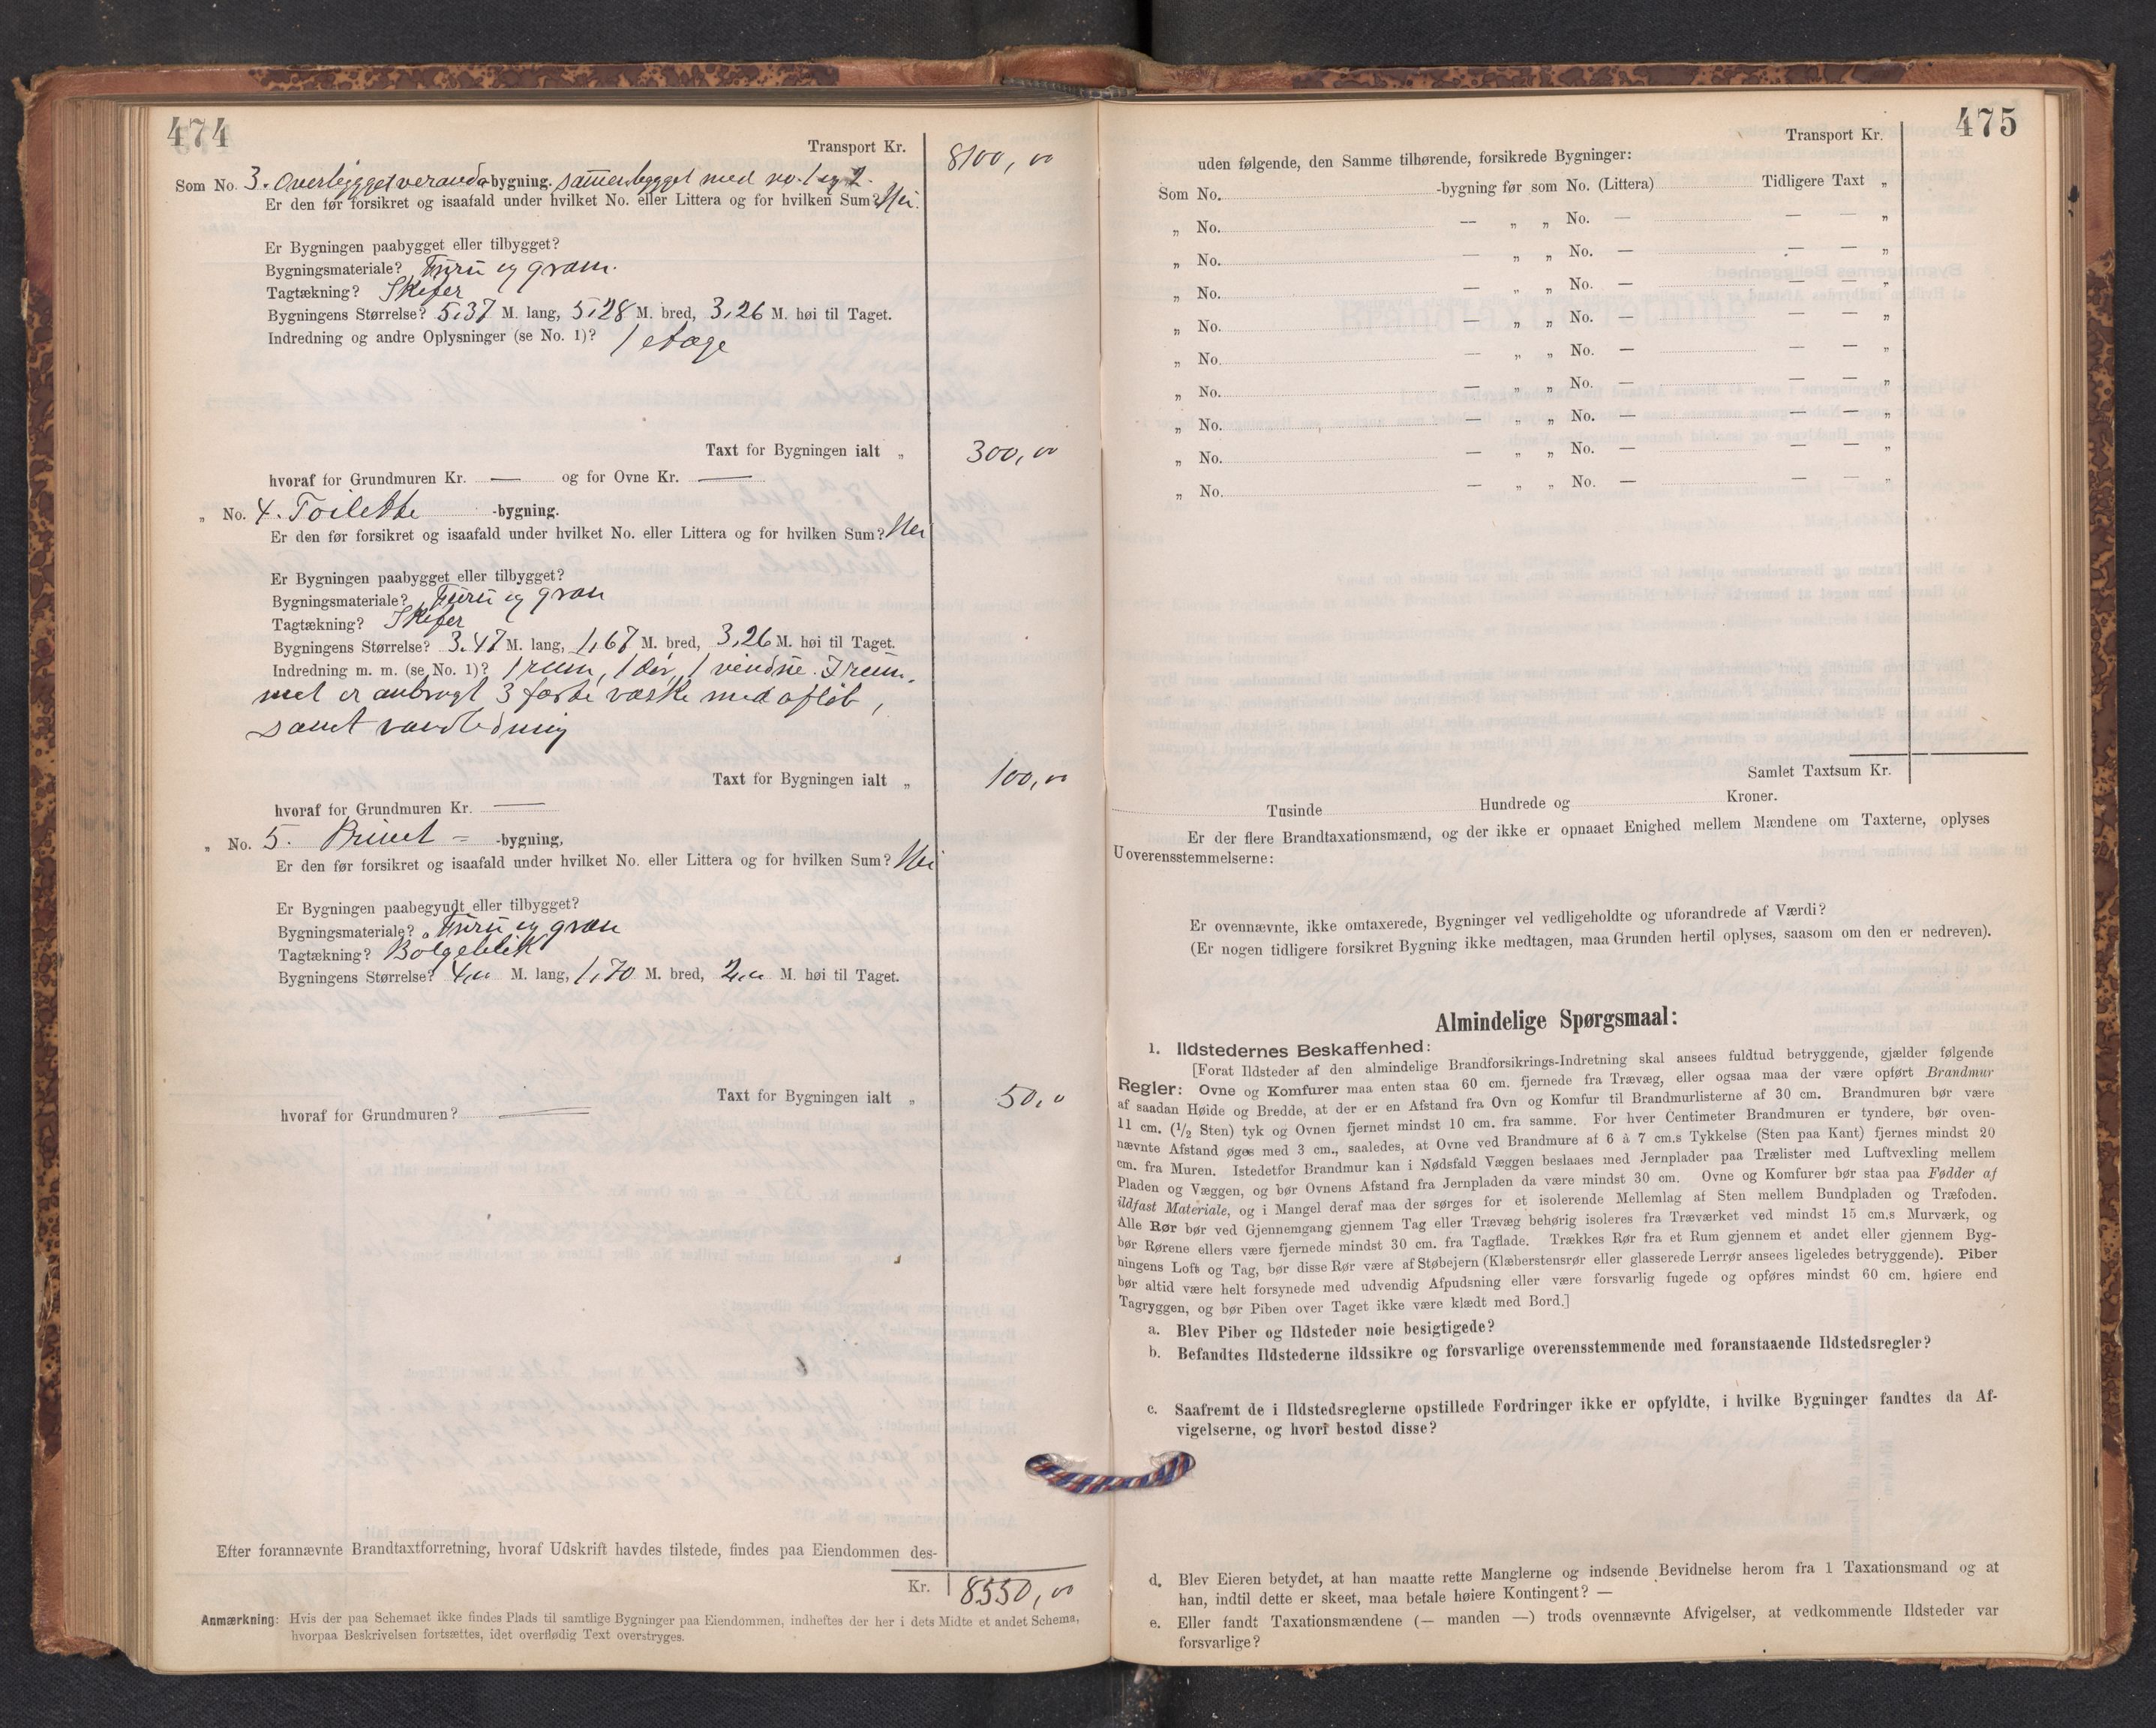 474
Transport Kr. 8100,00
Som No. 3. Overbygget veranda-bygning. sammenbygget med no. 1 og 2.
Er den før forsikret og isaafald under hvilket No. eller Littera og for hvilken Sum? Nei.
Er Bygningen paabygget eller tilbygget?
Bygningsmateriale? Furu og gran.
Tagtækning? Skifer
Bygningens Størrelse? 5,37 M. lang, 5,28 M. bred, 3,26 M. høi til Taget.
Indredning og andre Oplysninger (se No. 1)? 1 etage
Taxt for Bygningen ialt „ 300,00
hvoraf for Grundmuren Kr. — og for Ovne Kr. —
„ No. 4. Toilette -bygning.
Er den før forsikret og isaafald under hvilket No. eller Littera og for hvilken Sum? Nei
Er Bygningen paabygget eller tilbygget?
Bygningsmateriale? Furu og gran
Tagtækning? Skifer
Bygningens Størrelse? 3,47 M. lang, 1,67 M. bred, 3,26 M. høi til Taget.
Indredning m. m. (se No. 1)? 1 rum, 1 dør, 1 vindue. I rum-
met er anbragt 3 faste vaske med afløb,
samt vandledning
Taxt for Bygningen ialt „ 100,00
hvoraf for Grundmuren Kr. —
„ No. 5. Privet - -bygning,
Er den før forsikret og isaafald under hvilket No. eller Littera og for hvilken Sum? Nei
Er Bygningen paabegyndt eller tilbygget?
Bygningsmateriale? Furu og gran
Tagtækning? Bølgeblik
Bygningens Størrelse? 4,00 M. lang, 1,70 M. bred, 2,00 M. høi til Taget.
Taxt for Bygningen ialt „ 50,00
hvoraf for Grundmuren? —
Efter forannævnte Brandtaxtforretning, hvoraf Udskrift havdes tilstede, findes paa Eiendommen des-
Kr. 8550,00
Anmærkning: Hvis der paa Schemaet ikke findes Plads til samtlige Bygninger paa Eiendommen, indheftes der her i dets Midte et andet Schema,
hvorpaa Beskrivelsen fortsættes, idet overflødig Text overstryges.
475
Transport Kr.
uden følgende, den Samme tilhørende, forsikrede Bygninger:
Som No. -bygning før som No. (Littera) Tidligere Taxt „
„ No. — „ „ No. — — — „
„ No. — „ „ No. — — — „
„ No. — „ „ No. — — — „
„ No. — „ „ No. — — — „
„ No. — „ „ No. — — — „
„ No. — „ „ No. — — — „
„ No. — „ „ No. — — — „
„ No. — „ „ No. — — — „
„ No. — „ „ No. — — — „
Samlet Taxtsum Kr.
Tusinde Hundrede og Kroner.
Er der flere Brandtaxationsmænd, og der ikke er opnaaet Enighed mellem Mændene om Taxterne, oplyses
Uoverensstemmelserne:
Er ovennævnte, ikke omtaxerede, Bygninger vel vedligeholdte og uforandrede af Værdi?
(Er nogen tidligere forsikret Bygning ikke medtagen, maa Grunden hertil oplyses, saasom om den er nedreven).
Almindelige Spørgsmaal:
1. Ildstedernes Beskaffenhed:
[Forat Ildsteder af den almindelige Brandforsikrings-Indretning skal ansees fuldtud betryggende, gjælder følgende
Regler: Ovne og Komfurer maa enten staa 60 cm. fjernede fra Trævæg, eller ogsaa maa der være opført Brandmur
af saadan Høide og Bredde, at der er en Afstand fra Ovn og Komfur til Brandmurlisterne af 30 cm. Brandmuren bør være
11 cm. (1/2 Sten) tyk og Ovnen fjernet mindst 10 cm. fra samme. For hver Centimeter Brandmuren er tyndere, bør oven-
nævnte Afstand øges med 3 cm., saaledes, at Ovne ved Brandmure af 6 à 7 cm.s Tykkelse (Sten paa Kant) fjernes mindst 20
cm. fra Muren. Istedetfor Brandmur kan i Nødsfald Væggen beslaaes med Jernplader paa Trælister med Luftvexling mellem
Pladen og Væggen, og bør Ovnens Afstand fra Jernpladen da være mindst 30 cm. Ovne og Komfurer bør staa paa Fødder af
ildfast Materiale, og i Mangel deraf maa der sørges for et isolerende Mellemlag af Sten mellem Bundpladen og Træfoden.
Alle Rør bør ved Gjennemgang gjennem Tag eller Trævæg behørig isoleres fra Træværket ved mindst 15 cm.s Murværk, og
bør Rørene ellers være fjernede mindst 30 cm. fra Tagflade. Trækkes Rør fra et Rum gjennem et andet eller gjennem Byg-
ningens Loft og Tag, bør disse Rør være af Støbejern (Klæberstensrør eller glasserede Lerrør ansees ligeledes betryggende). Piber
bør altid være helt forsynede med udvendig Afpudsning eller være forsvarlig fugede og opføres mindst 60 cm. høiere end
Tagryggen, og bør Piben over Taget ikke være klædt med Bord.]
a. Blev Piber og Ildsteder nøie besigtigede?
b. Befandtes Ildstederne ildssikre og forsvarlige overensstemmende med foranstaaende Ildstedsregler?
c. Saafremt de i Ildstedsreglerne opstillede Fordringer ikke er opfyldte, i hvilke Bygninger fandtes da Af-
vigelserne, og hvori bestod disse?
d. Blev Eieren betydet, at han maatte rette Manglerne og indsende Bevidnelse herom fra 1 Taxationsmand og at
han, indtil dette er skeet, maa betale høiere Kontingent? —
e. Eller fandt Taxationsmændene (— manden —) trods ovennævnte Afvigelser, at vedkommende Ildsteder var
forsvarlige?